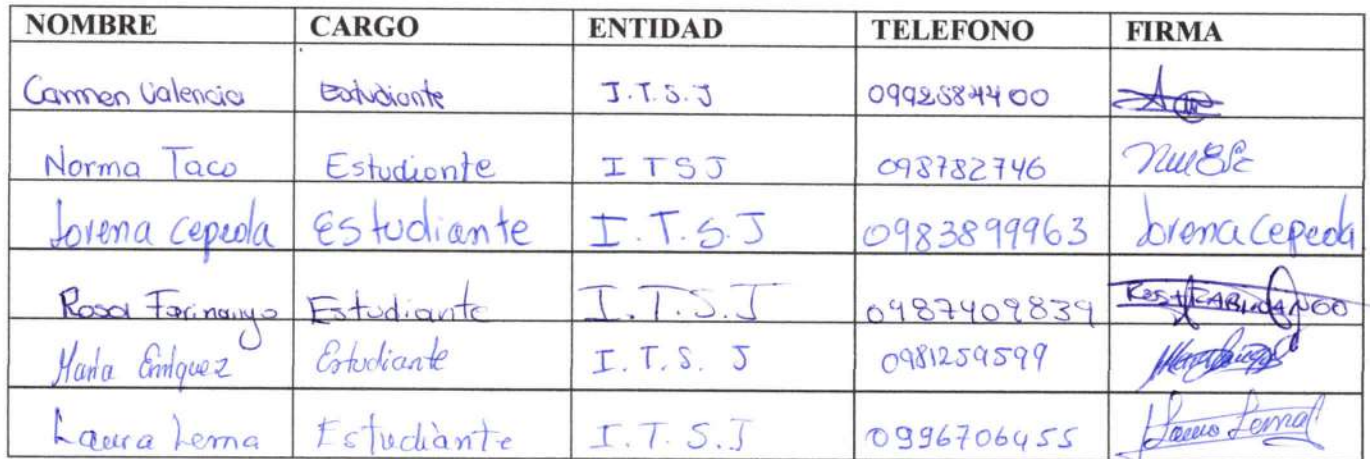 NOMBRE CARGO ENTIDAD TELEFONO FIRMA
Carmen Valencia Estudiante I.T.S.J 0992584400
Norma Taco Estudiante I T S J 098782746
Lorena cepeda Estudiante I.T.S.J 0983899963 Lorena cepeda
Rosa Farinango Estudiante I.T.S.J 0987409839
Maria Enriquez Estudiante I.T.S. J 0981259599
Laura Lema Estudiante I.T.S.J 0996706455 Laura Lema